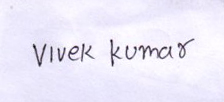 Vivek kumar